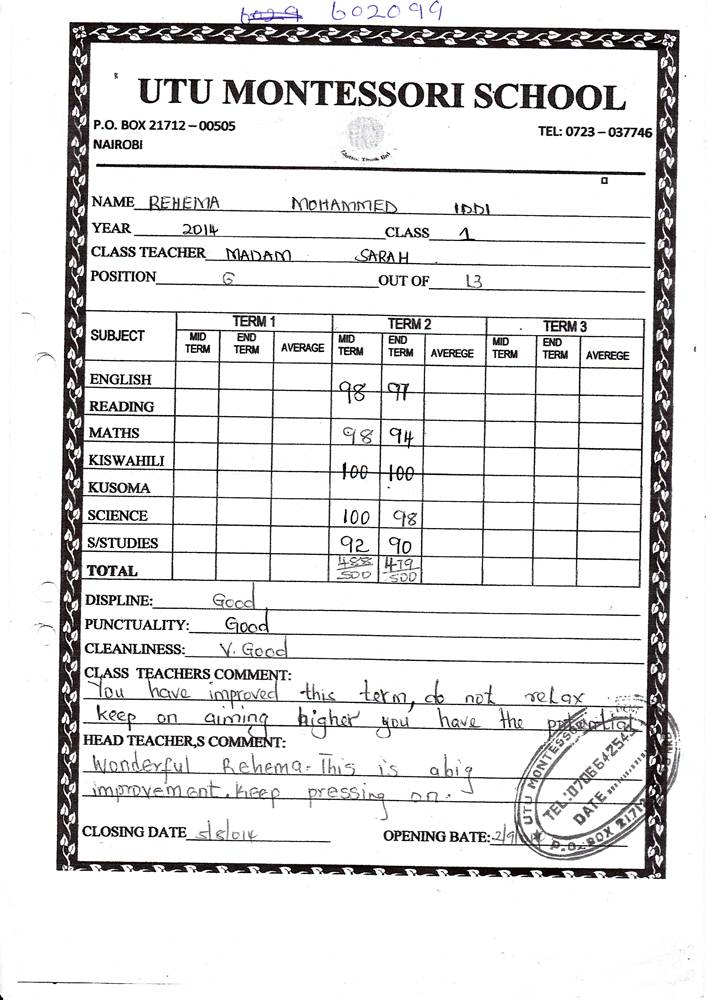 602099
UTU MONTESSORI SCHOOL
P.O. BOX 21712 – 00505
TEL: 0723 – 037746
NAIROBI
NAME REHEMA MOHAMMED IDDI
YEAR 2014 CLASS 1
CLASS TEACHER MADAM SARAH
POSITION 6 OUT OF 13
SUBJECT TERM 1 TERM 2 TERM 3
MID TERM END TERM AVERAGE MID TERM END TERM AVEREGE MID TERM END TERM AVEREGE
ENGLISH
98 97
READING
MATHS 98 94
KISWAHILI
100 100
KUSOMA
SCIENCE 100 98
S/STUDIES 92 90
TOTAL 488/500 479/500
DISPLINE: Good
PUNCTUALITY: Good
CLEANLINESS: V. Good
CLASS TEACHERS COMMENT:
You have improved this term, do not relax
keep on aiming higher you have the potential
HEAD TEACHER,S COMMENT:
Wonderful Rehema. This is abig
improvement. Keep pressing on.
CLOSING DATE 5/8/014 OPENING BATE: 2/9/014
UTU MONTESSORI
TEL: 0706642544
DATE
P.O. BOX 21712